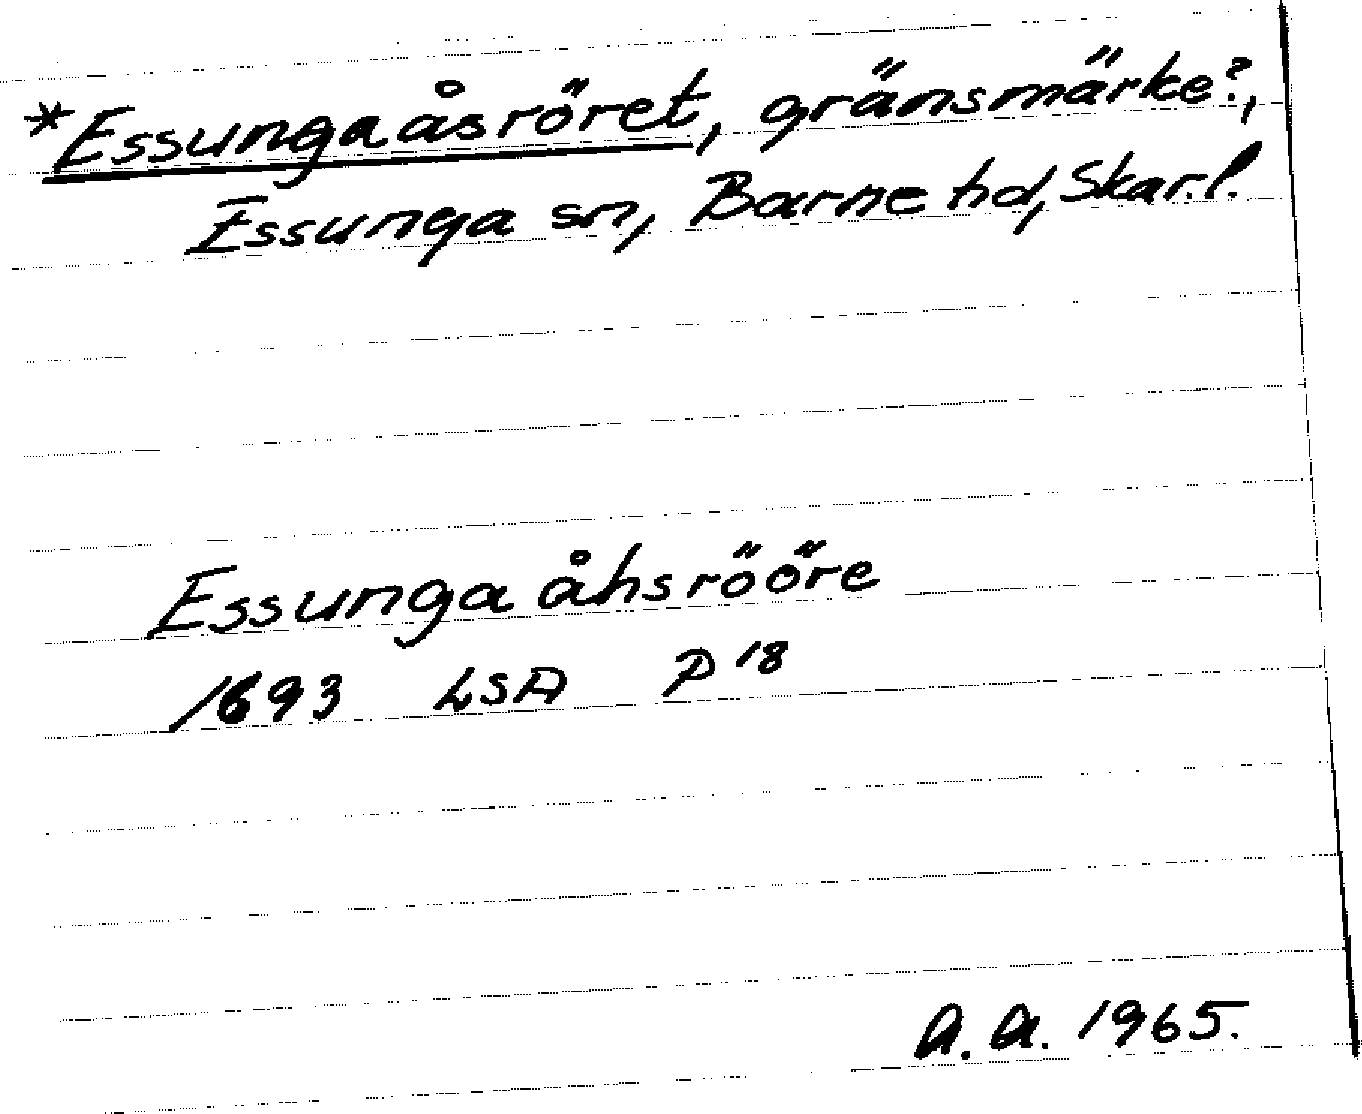 *Essungaåsröret, gränsmärke?,
Essunga sn, Barne hd, Skar.l.
Essunga åhsrööre
1693 LSA P 18
A. A. 1965.